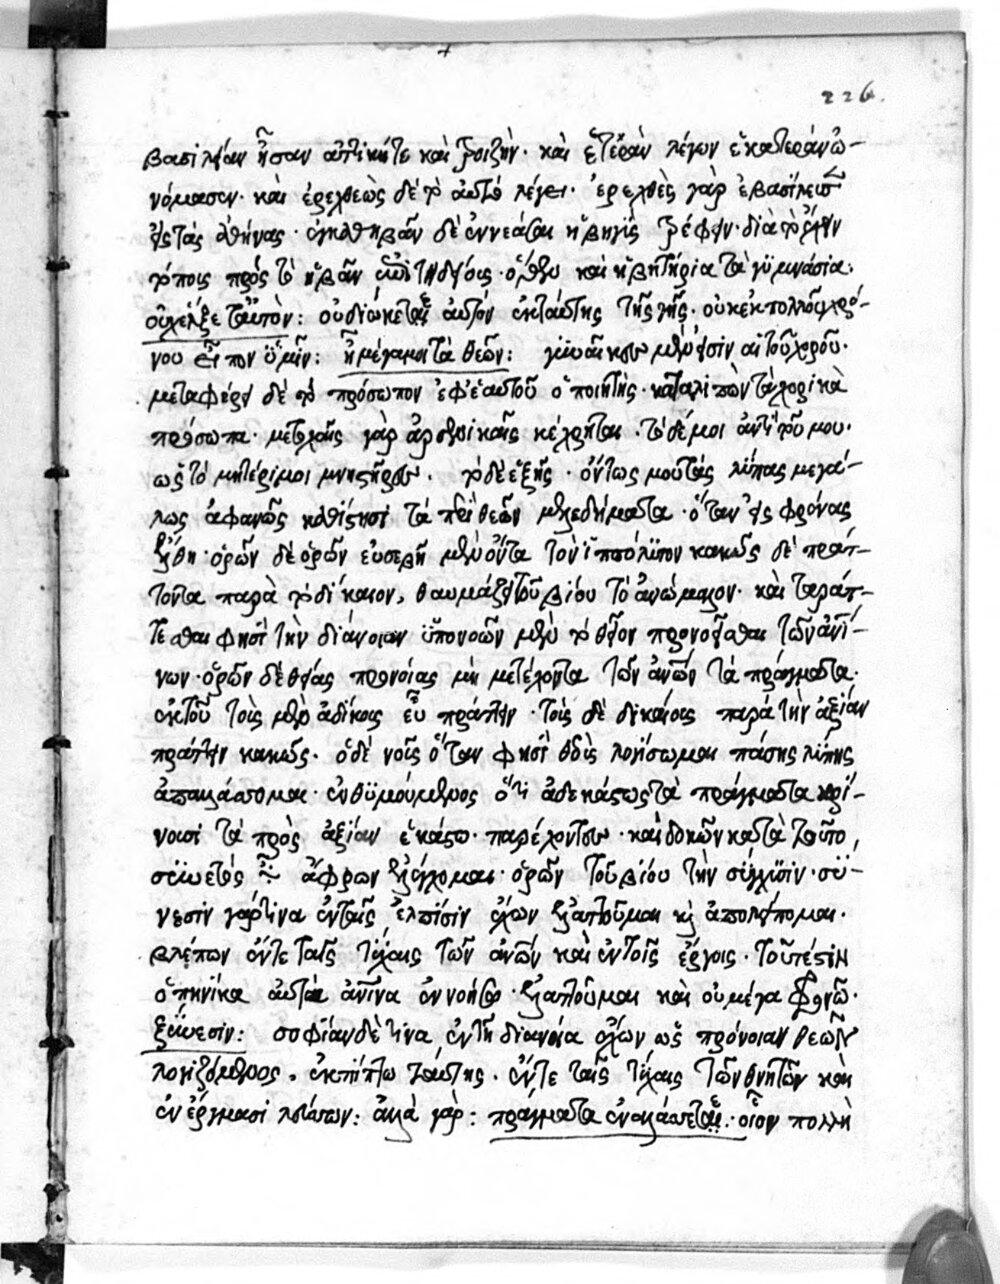 226.
βασιλείαν ἦσαν ἀττική τε καὶ τροιζήν· καὶ ἑτέραν λέγων ἑκατέραν ὠ-
νόμασεν· καὶ ἐρεχθέως δὲ τὸ αὐτὸ λέγει· ἐρεχθεὺς γὰρ ἐβασίλευσεν
εἰς τὰς ἀθήνας· ἐγκαθηβᾶν δὲ ἐννεάσαι ἡβηταῖς τρέφειν· διὰ τὸ εἶναι
τόποις πρὸς τὸ ἡβᾶν ἐπιτηδείοις· ὅθεν καὶ ἡβητήρια τὰ γυμνάσια·
οὐχ ἕλξετ' αὐτόν: οὐ διώκεται αὐτὸν ἐκ ταύτης τῆς γῆς· οὐκ ἐκ πολλοῦ χρό-
νου εἶπον ὑμῖν: ἦ μέγα μοι τὰ θεῶν: γυναῖκες μέν εἰσιν αἱ τοῦ χοροῦ·
μεταφέρει δὲ τὸ πρόσωπον ἐφ' ἑαυτοῦ ὁ ποιητὴς· καταλιπὼν τὰ χορικὰ
πρόσωπα· μετοχαῖς γὰρ ἀρσενικαῖς κέχρηται· τὸ δέ μοι ἀντὶ τοῦ μου·
ὡς τὸ μήτερι μοι μνηστῆρες· τὸ δὲ ἑξῆς· ὄντως μου τὰς λύπας μεγά-
λως ἀφανῶς καθίστησι τὰ περὶ θεῶν μελεδήματα· ὅταν εἰς φρένας
ἔλθῃ· ὁρῶν δὲ ὁρῶν εὐσεβῆ μὲν ὄντα τὸν ἱππόλυτον κακῶς δὲ πράτ-
τοντα παρὰ τὸ δίκαιον, θαυμάζει τοῦ βίου τὸ ἀνώμαλον· καὶ ταράτ-
τεσθαι φησὶ τὴν διάνοιαν ὑπονοῶν μὲν τὸ θεῖον προνοεῖσθαι τῶν ἀνθρώ-
νων· ὁρῶν δὲ θείας προνοίας μὴ μετέχοντα τῶν ἀνθρώπων τὰ πράγματα·
ἐκ τοῦ τοὺς μὲν ἀδίκους εὖ πράττειν· τοὺς δὲ δικαίους παρὰ τὴν ἀξίαν
πράττειν κακῶς· ὁ δὲ νοῦς ὅταν φησὶ θεοὺς λογίσωμαι πάσης λύπης
ἀπαλλάσσομαι· ἐνθυμούμενος ὅτι ἀδεκάστως τὰ πράγματα κρί-
νουσι τὰ πρὸς ἀξίαν ἑκάστῳ· παρέχοντες· καὶ δοκῶν κατὰ τοῦτο,
συνετός τις ἄφρων ἐλέγχομαι· ὁρῶν τοῦ βίου τὴν σύγχυσιν· σύ-
νεσιν γάρ τινα ἐν ταῖς ἐλπίσιν ἔχων ἐλαττοῦμαι καὶ ἀπολείπομαι·
βλέπων ἔν τε ταῖς τύχαις τῶν ἀνθρώπων καὶ ἐν τοῖς ἔργοις· τουτέστιν
ὁπηνίκα αὐτὰ ἐννοήσω· ἐλαττοῦμαι καὶ οὐ μέγα φρονῶ·
ξύνεσιν: σοφίαν δέ τινα ἐν τῇ διανοίᾳ ἔχων ὡς πρόνοιαν θεῶν
λογιζόμενος, ἐκπίπτω ταύτης· ἔν τε ταῖς τύχαις τῶν θνητῶν καὶ
ἐν ἔργμασι λεύσσων: ἄλλα γὰρ: πράγματα ἐναλλάσσεται· οἷον πολλὴ